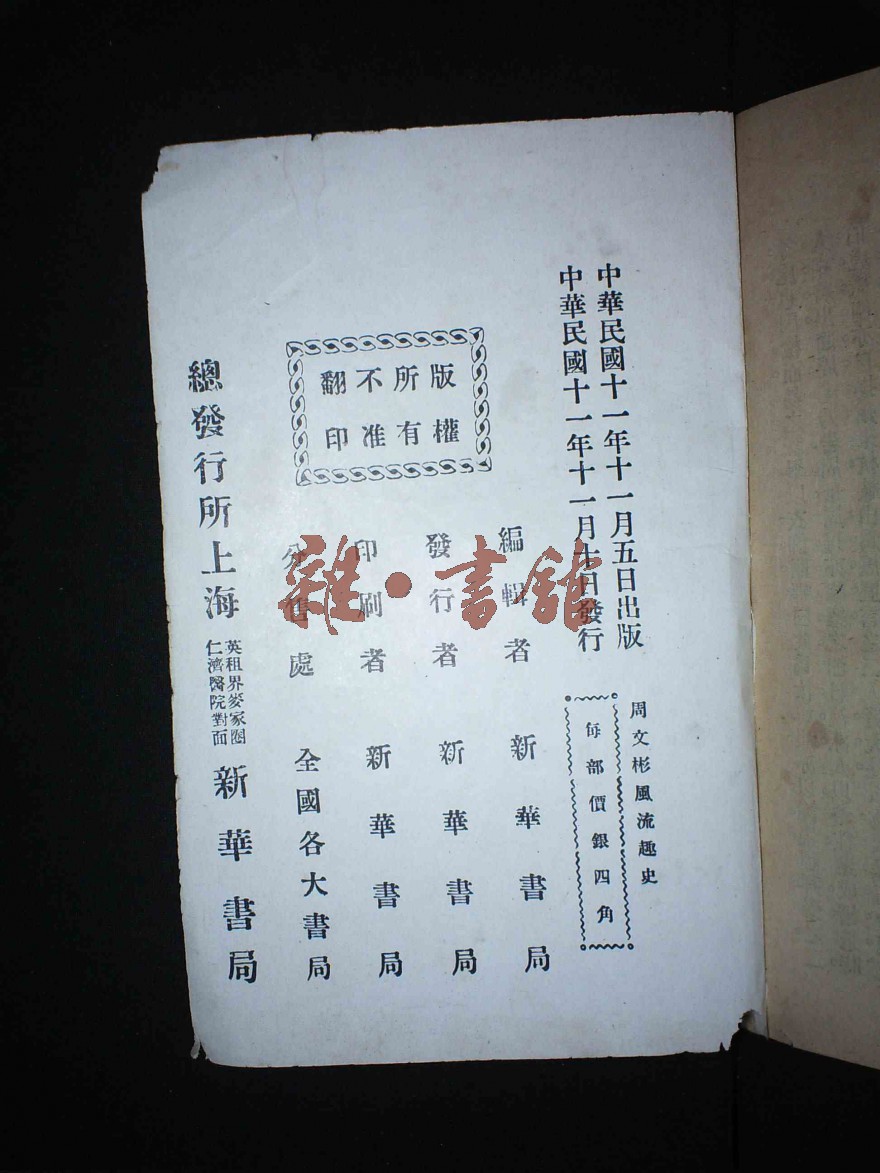 中華民國十一年十一月五日出版
中華民國十一年十一月十日發行
周文彬風流趣史
每部價銀四角
版權
所有
不准
翻印
編輯者 新華書局
發行者 新華書局
印刷者 新華書局
分售處 全國各大書局
總發行所上海
英租界麥家圈
仁濟醫院對面
新華書局
雜·書館